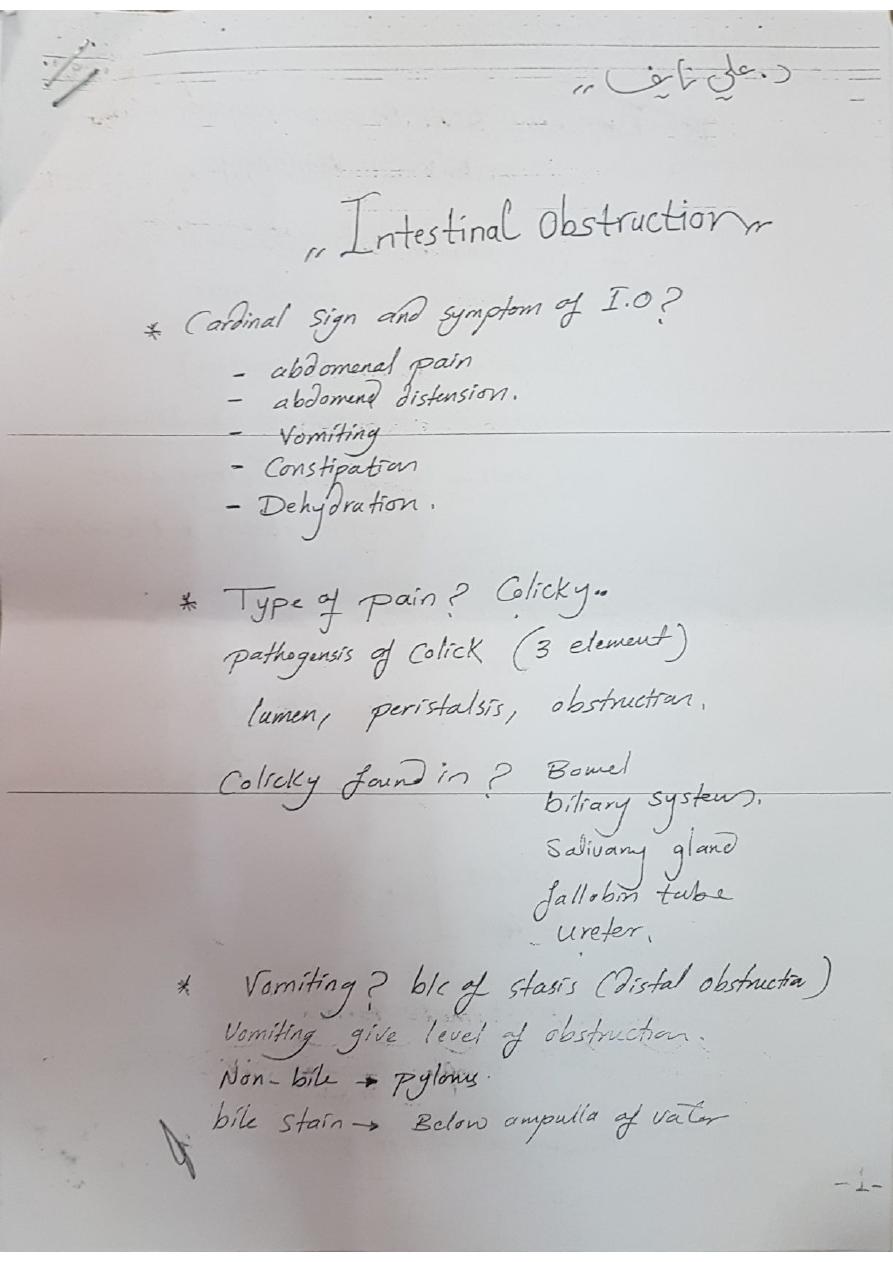 د. علي نايف
,, Intestinal Obstruction ,,
* Cardinal sign and symptom of I.O?
- abdomenal pain
- abdomenal distension.
- Vomiting
- Constipation
- Dehydration.
* Type of pain? Colicky..
pathogensis of Colick (3 element)
lumen, peristalsis, obstruction.
Colicky found in? Bowel
biliary system.
Salivary gland
fallobin tube
- ureter.
* Vomiting? b/c of stasis (distal obstruction)
Vomiting give level of obstruction.
Non-bile → pylorus.
bile stain → Below ampulla of vater
-1-